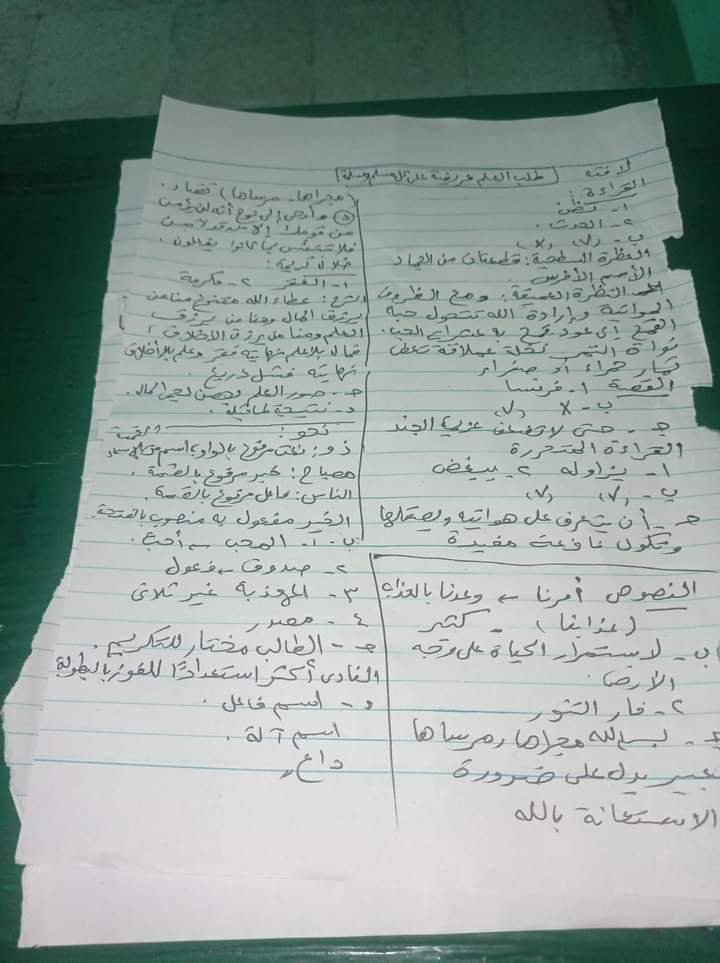 لافته
طلب العلم فريضة على كل مسلم ومسلمة
القراءة:
١-
٢- الحدث.
ب- (√) (×)
النظرة السطحية: قطعتان من الجماد
الأصم الأخرس
النظرة العميقة: ومع الظروف
المواتية وإرادة الله تتحول حبة
القمح إلى عود قمح به عشرات الحب.
نواة التمر نخلة عملاقة تعطى
ثمار حمراء أو صفراء
القصة ١- فرنسا
ب- × √
جـ- حتى لا تضعف عزيمة الجند
القراءة المتحررة
١- يزاوله ٢- يبغض
ب- (√) (√)
جـ- أن يتعرف على هواتيه ويصقلها
وتكون نافعة مفيدة
النصوص أمرنا ← وعدنا بالعذاب
(عذابنا) - كثير
ب- لاستمرار الحياة على وجه
الأرض.
٢- فار التنور
جـ- بسم الله مجراها ومرساها
تعبير يدل على ضرورة
الاستعانة بالله
(مجراها - مرساها) تضاد.
وأوحى إلى نوح أنه لن يؤمن
من قومك إلا من قد آمن
فلا تبتئس بما كانوا يفعلون.
خلال كريمة:
١- الفقر ٢- مكرمة
الشرح: عطاء الله متنوع منا من
يرزق المال ومنا من يرزق
العلم ومنا من يرزق الأخلاق
فمال بلا علم نهايته فقر وعلم بلا أخلاق
نهايته فشل ذريع.
جـ- صور العلم يحمى المال.
د- نتيجة لما قبله.
نحو:
ذو: نعت مرفوع بالواو اسم من الأسماء
مصباح: خبر مرفوع بالضمة.
الناس: فاعل مرفوع بالضمة.
الخير مفعول به منصوب بالفتحة
ب. ١. المحب ← أحب.
٢- صدوق ← فعول
٣- المهذبة غير ثلاثى
٤- مصدر
جـ- الطالب مختار للتكريم.
الفادى أكثر استعدادًا للفوز بالبطولة
د- اسم فاعل.
اسم آلة.
داعٍ